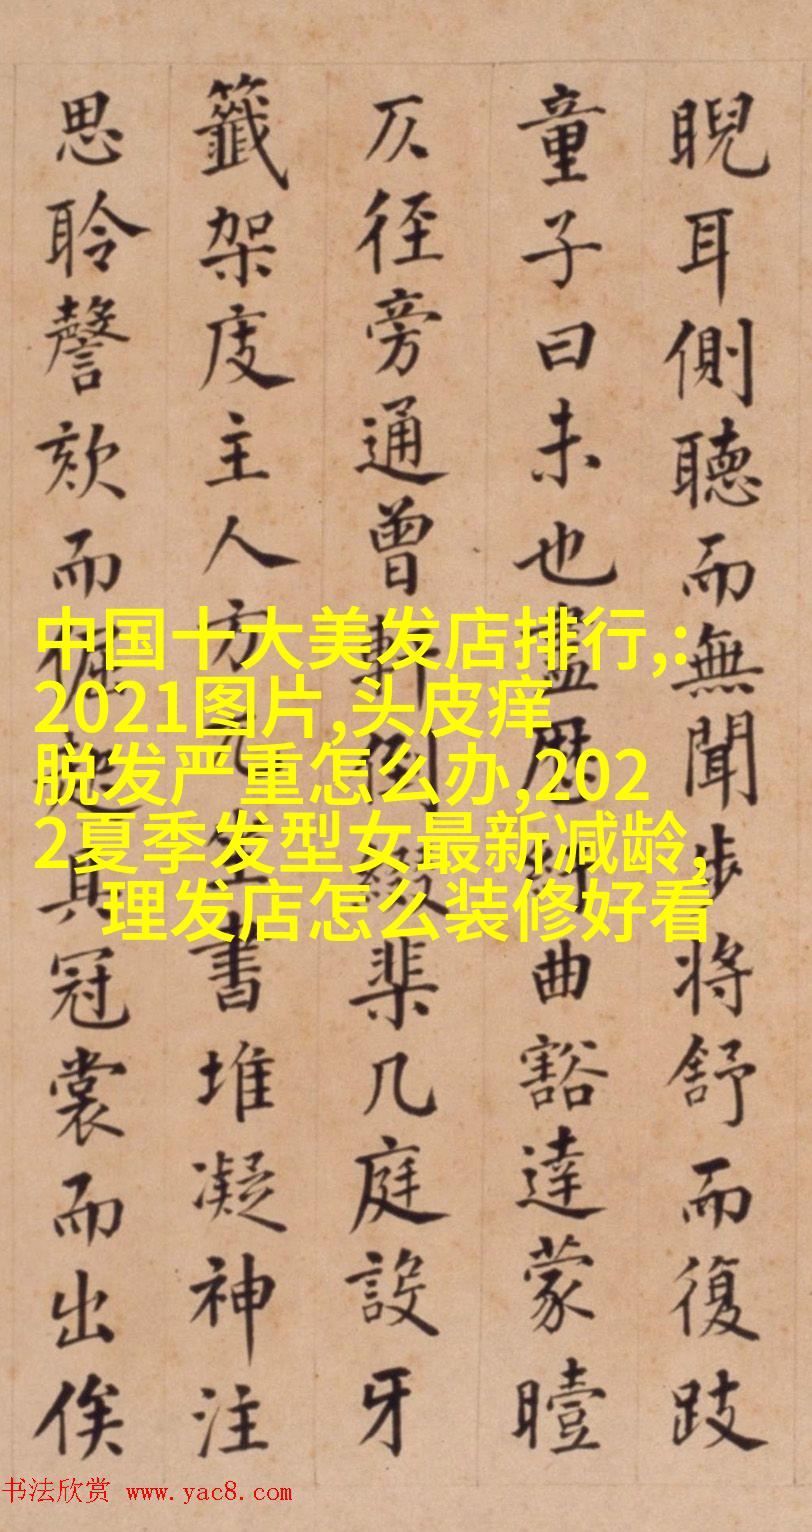 睨耳側聽而無聞步將舒而復跂
童子曰未也盡歷曲豁達蒙曀
仄径旁通曾軒棐几庭設牙
籤架庋主人方兀坐書堆凝神注
思聆謦欬而起具冠裳而出俟
中国十大美发店排行,:
2021图片,头皮痒
脱发严重怎么办,202
2夏季发型女最新减龄,
理发店怎么装修好看
书法欣赏 www.yac8.com